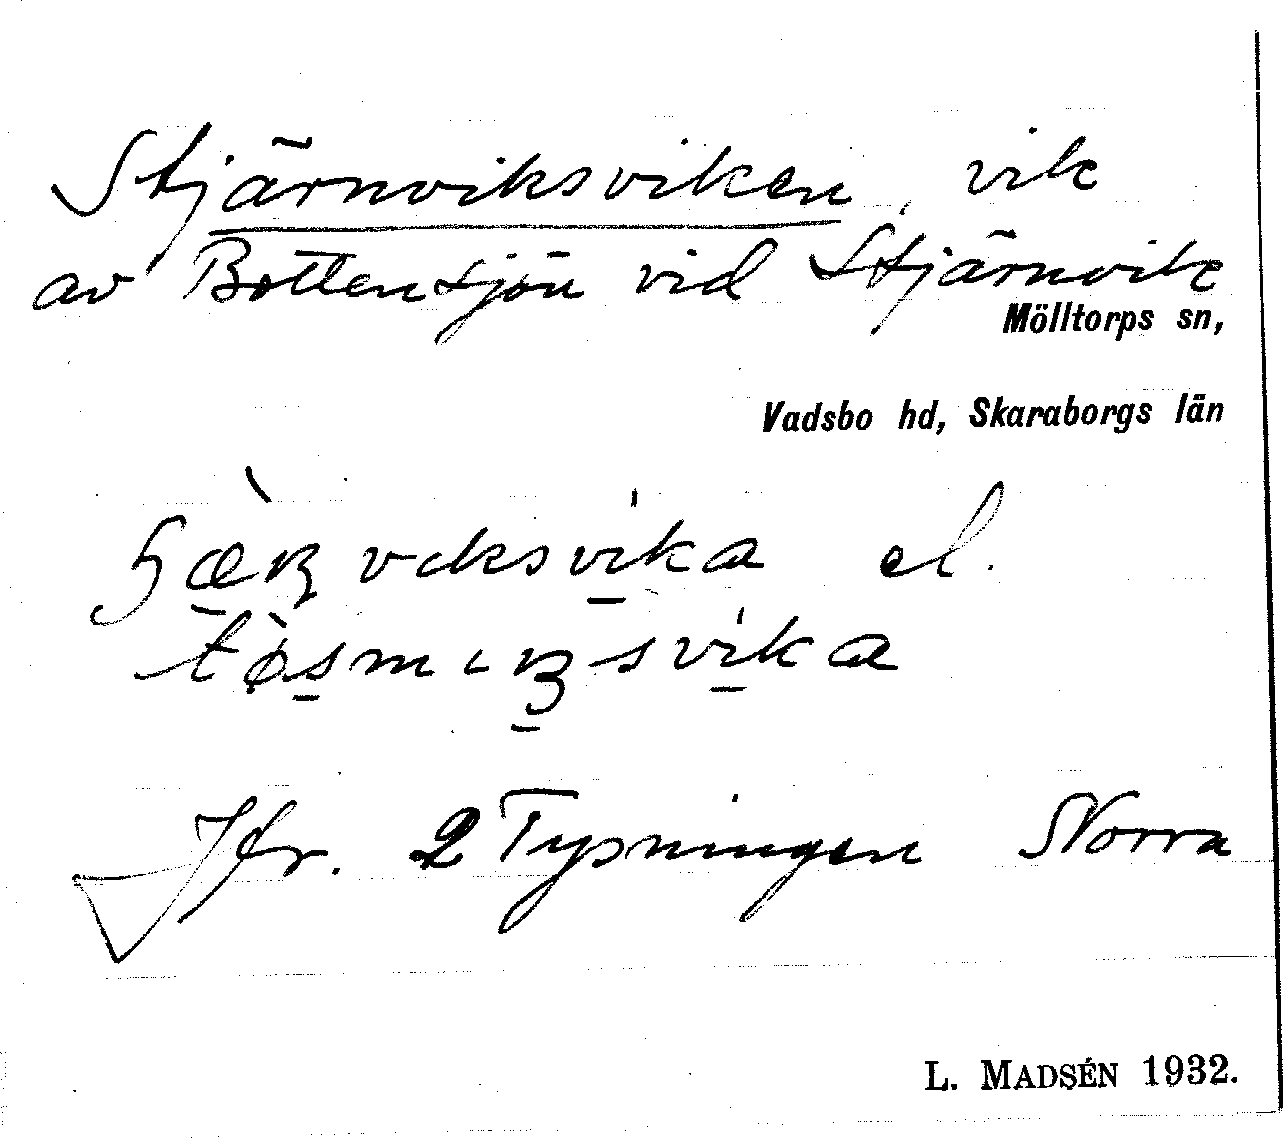 Stjärnviksviken, vik
av Bottensjön vid Stjärnvik
Mölltorps sn,
Vadsbo hd, Skaraborgs län
el.
Jfr. 2 Tysningen Norra
L. MADSÉN 1932.